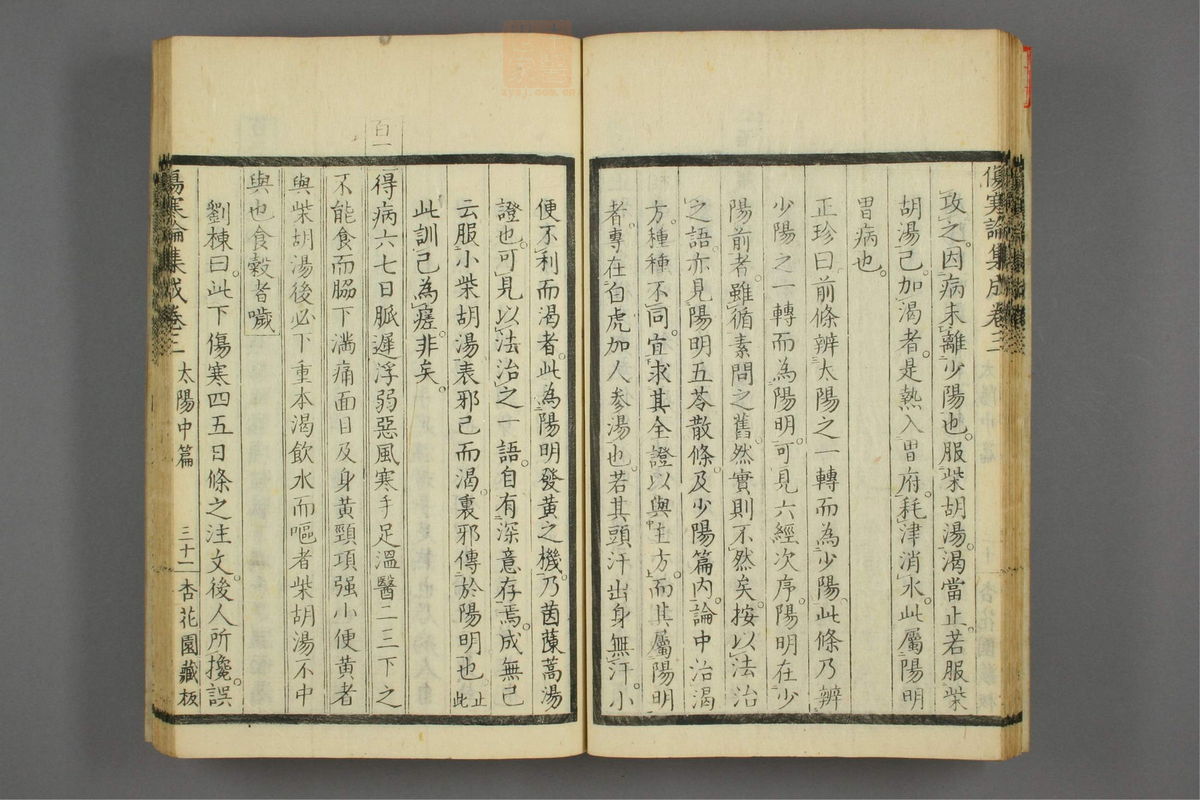 傷寒論集成卷三
攻之因病未離少陽也服柴胡湯渴當止若服柴
胡湯已加渴者是熱入胃府耗津消水此屬陽明
胃病也
正珍曰前條辨太陽之一轉而為少陽此條乃辨
少陽之一轉而為陽明可見六經次序陽明在少
陽前者雖循素問之舊然實則不然矣按以法治
之語亦見陽明五苓散條及少陽篇內論中治渴
方種種不同宜求其全證以與主方而其屬陽明
者專在白虎加人參湯也若其頭汗出身無汗小
便不利而渴者此為陽明發黃之機乃茵蔯蒿湯
證也可見以法治之一語自有深意存焉成無己
云服小柴胡湯表邪已而渴裏邪傳於陽明也止此
此訓已為瘥非矣
百一
得病六七日脈遲浮弱惡風寒手足溫醫二三下之
不能食而脇下満痛面目及身黃頸項强小便黃者
與柴胡湯後必下重本渴飲水而嘔者柴胡湯不中
與也食穀者噦
劉棟曰此下傷寒四五日條之注文後人所攙誤
傷寒論集成卷三 太陽中篇 三十二 杏花園藏板